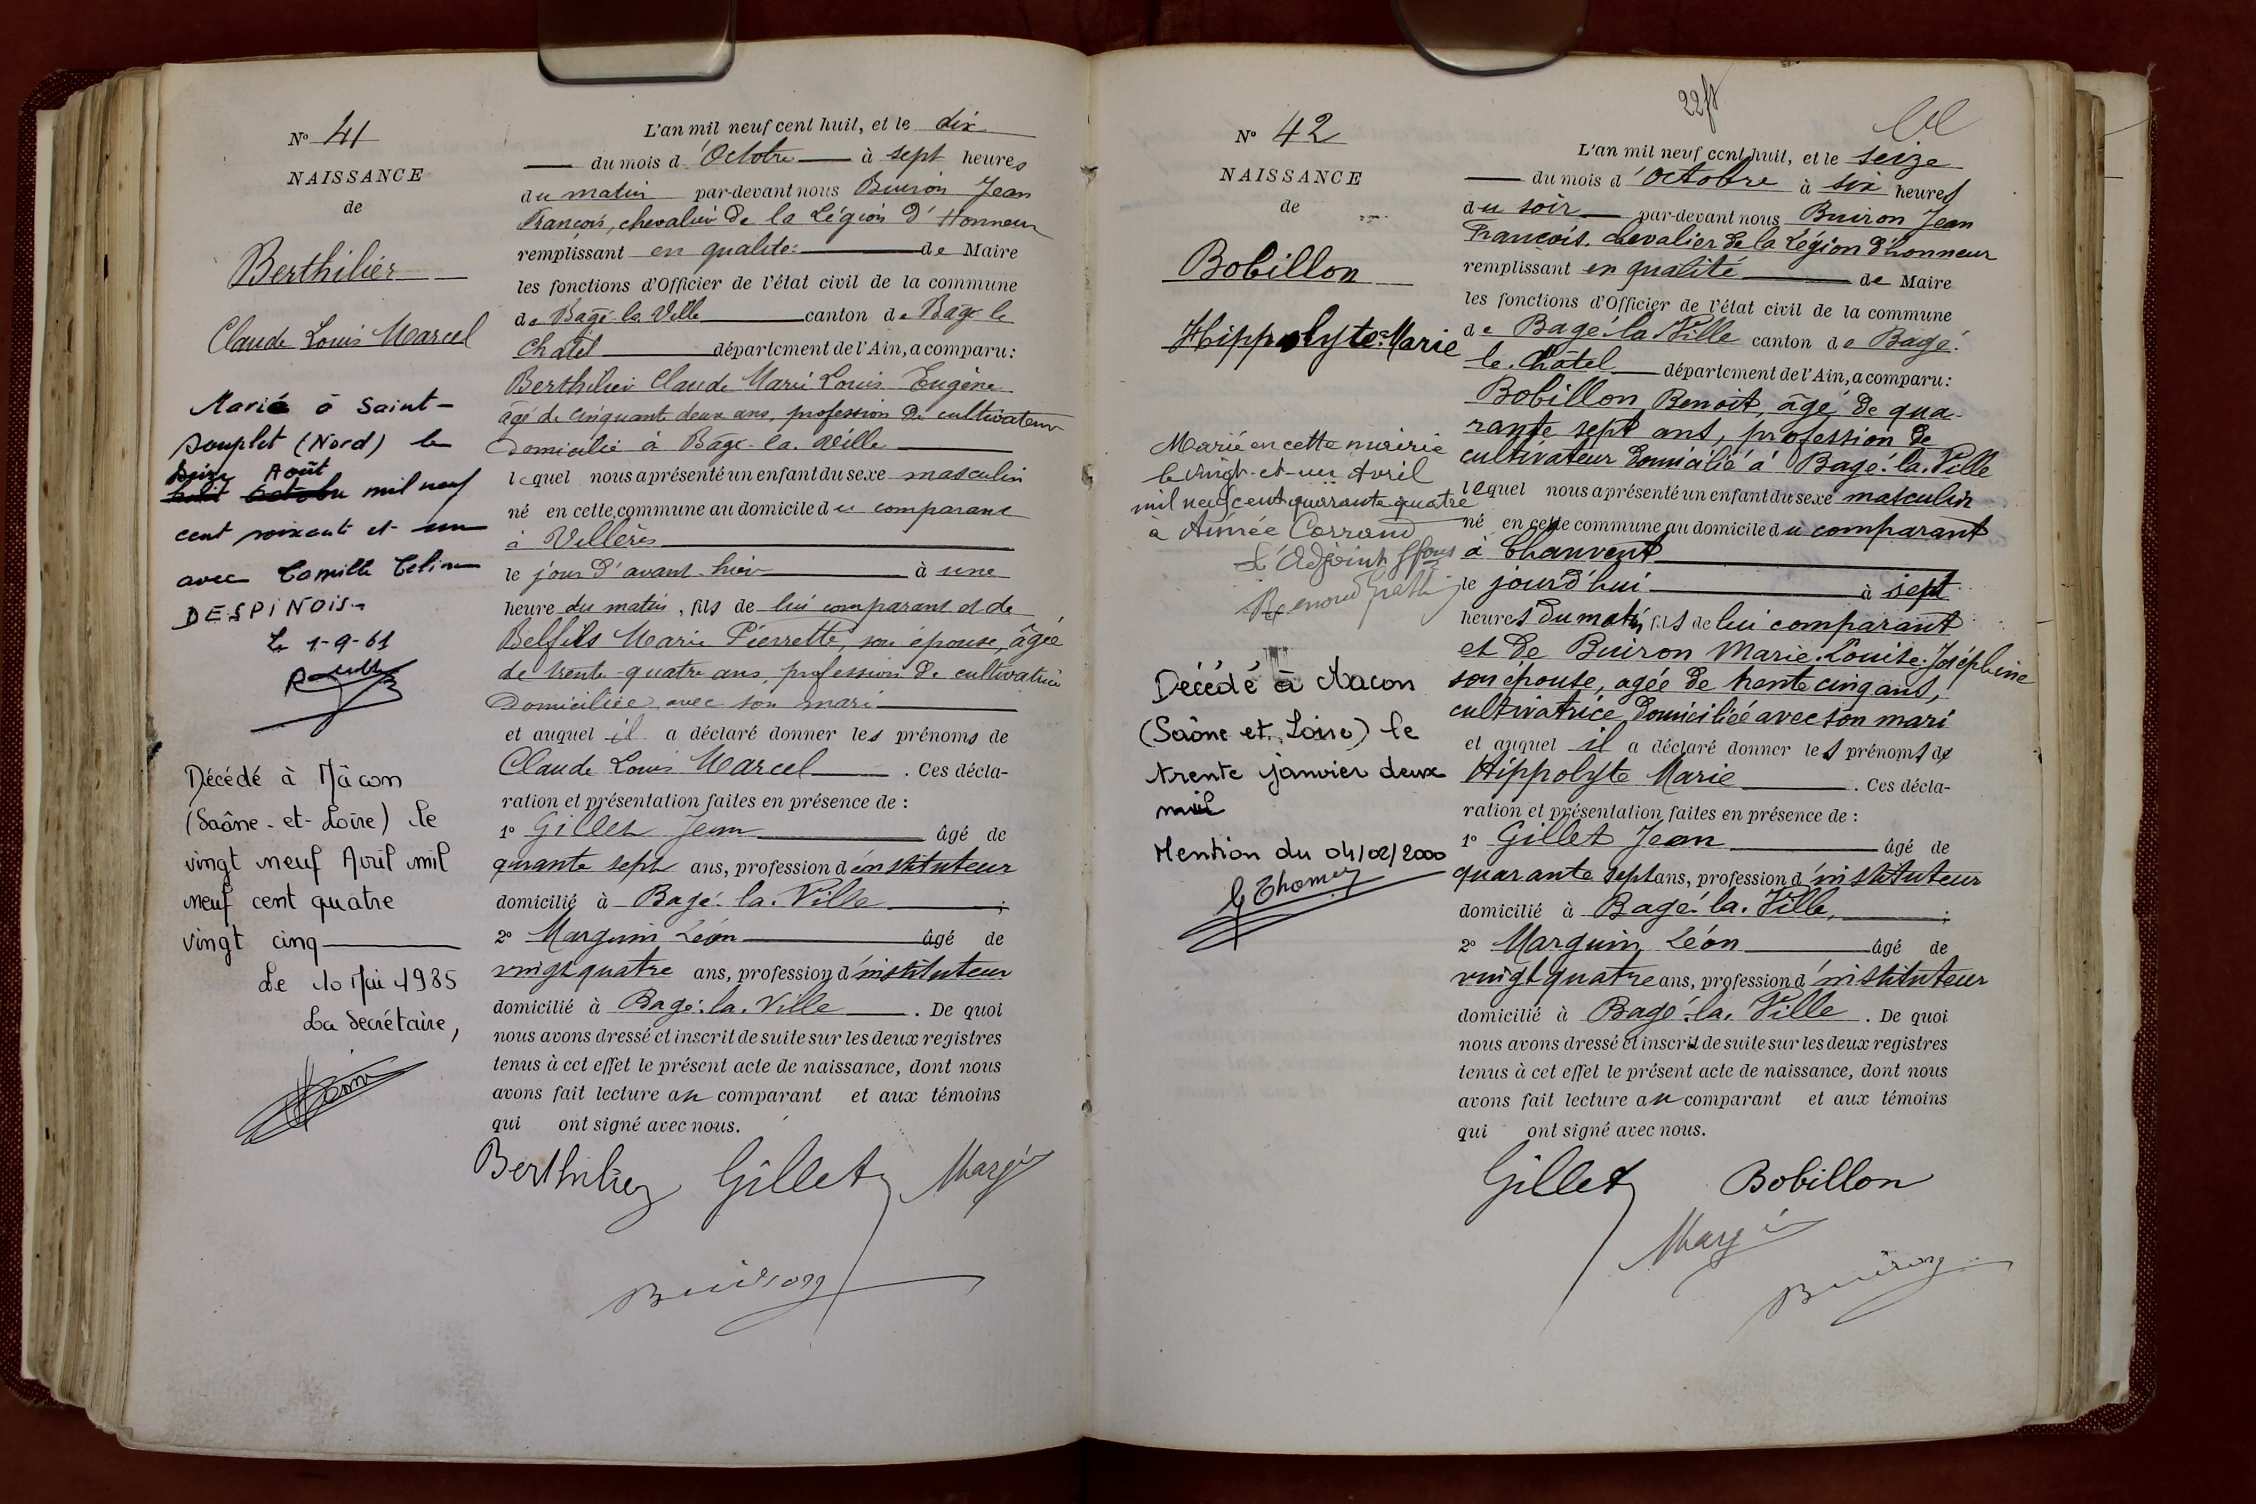 N° 41
NAISSANCE
de
Berthilier
Claude Louis Marcel
Marié à Saint-
Souplet (Nord) le
seize Août
huit Octobre mil neuf
cent soixante et un
avec Camille Celine
DESPINOIS.
Le 1-9-61
Décédé à Mâcon
(Saône-et-Loire) le
vingt neuf Avril mil
neuf cent quatre
vingt cinq
Le 10 Mai 1985
La Secrétaire,
L'an mil neuf cent huit, et le dix
du mois d'Octobre à sept heures
du matin par-devant nous Buiron Jean
François, chevalier de la Légion d'Honneur
remplissant en qualité de Maire
les fonctions d'Officier de l'état civil de la commune
de Bagé-la-Ville canton de Bagé le
Chatel département de l'Ain, a comparu:
Berthilier Claude Marie Louis Eugène
âgé de cinquante deux ans, profession de cultivateur
domicilié à Bagé-la-Ville
lequel nous a présenté un enfant du sexe masculin
né en cette commune au domicile du comparant
à Villères
le jour d'avant hier à une
heure du matin, fils de lui comparant et de
Belfils Marie Pierrette, son épouse, âgée
de trente-quatre ans, profession de cultivatrice
domiciliée avec son mari
et auquel il a déclaré donner les prénoms de
Claude Louis Marcel. Ces décla-
ration et présentation faites en présence de :
1° Gillet Jean âgé de
quante sept ans, profession d'instituteur
domicilié à Bagé-la-Ville ;
2° Marguin Léon âgé de
vingt quatre ans, profession d'instituteur
domicilié à Bagé-la-Ville. De quoi
nous avons dressé et inscrit de suite sur les deux registres
tenus à cet effet le présent acte de naissance, dont nous
avons fait lecture au comparant et aux témoins
qui ont signé avec nous.
Berthilier Gillet Margin
Buiron
22ft
N° 42
NAISSANCE
de
Bobillon
Hippolyte-Marie
Marié en cette mairie
le vingt-et-un Avril
mil neuf cent quarante quatre
à Aimée Corrand
L'Adjoint ffons
Décédé à Macon
(Saône et Loire) le
trente janvier deux
mil
Mention du 04/02/2000
L'an mil neuf cent huit, et le seize
du mois d'Octobre à six heures
du soir par-devant nous Buiron Jean
François, chevalier de la Légion d'honneur
remplissant en qualité de Maire
les fonctions d'Officier de l'état civil de la commune
de Bagé-la-Ville canton de Bagé-
le-Châtel département de l'Ain, a comparu:
Bobillon Benoit, âgé de qua-
rante sept ans, profession de
cultivateur domicilié à Bagé-la-Ville
lequel nous a présenté un enfant du sexe masculin
né en cette commune au domicile du comparant
à Chauvent
le jourd'hui à sept
heures du matin, fils de lui comparant
et de Buiron Marie-Louise-Joséphine
son épouse, agée de trente cinq ans,
cultivatrice domiciliée avec son mari
et auquel il a déclaré donner les prénoms de
Hippolyte Marie. Ces décla-
ration et présentation faites en présence de :
1° Gillet Jean âgé de
quarante sept ans, profession d'instituteur
domicilié à Bagé-la-Ville, ;
2° Marguin Léon âgé de
vingt quatre ans, profession d'instituteur
domicilié à Bagé-la-Ville. De quoi
nous avons dressé et inscrit de suite sur les deux registres
tenus à cet effet le présent acte de naissance, dont nous
avons fait lecture au comparant et aux témoins
qui ont signé avec nous.
Gillet Bobillon
Margin
Buiron